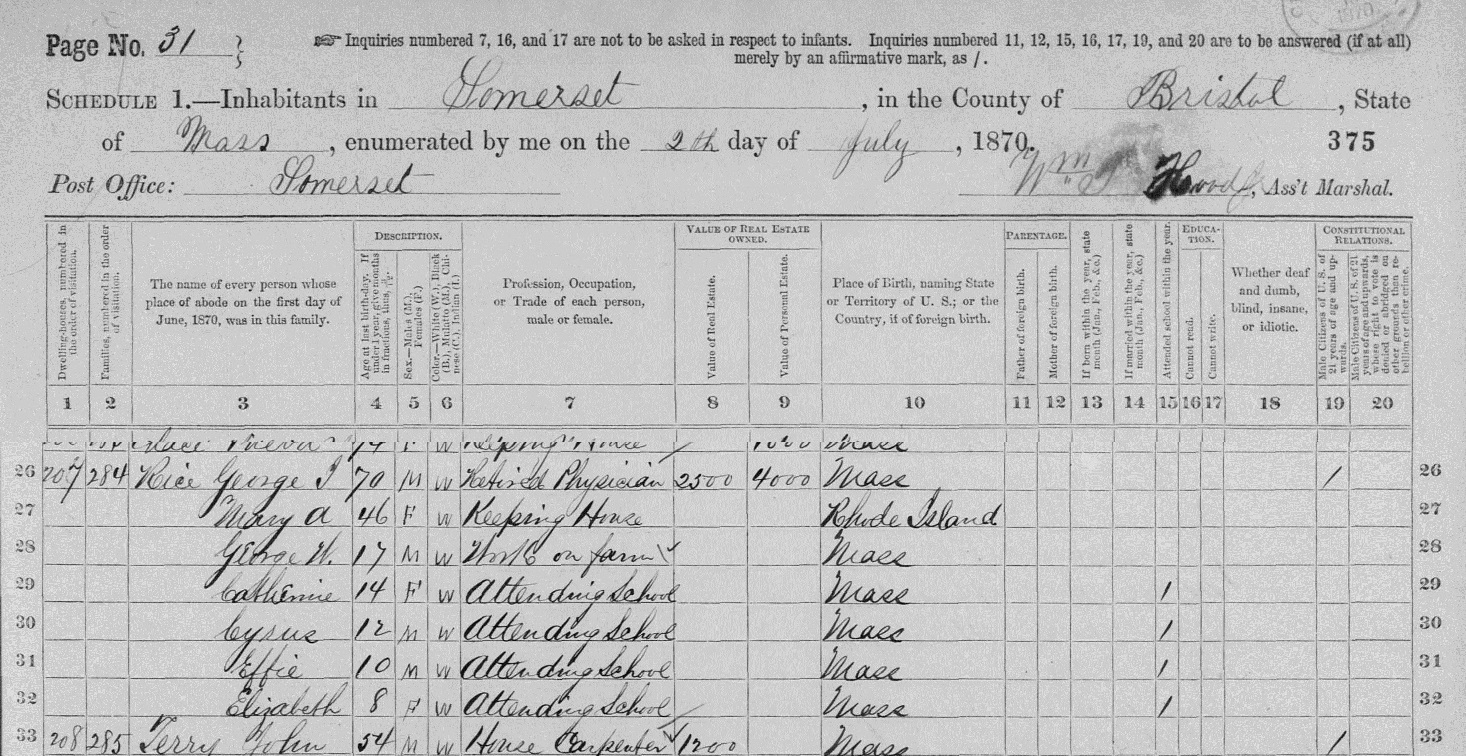 Page No. 31 }
☞ Inquiries numbered 7, 16, and 17 are not to be asked in respect to infants. Inquiries numbered 11, 12, 15, 16, 17, 19, and 20 are to be answered (if at all)
merely by an affirmative mark, as /.
SCHEDULE 1.—Inhabitants in Somerset, in the County of Bristol, State
of Mass, enumerated by me on the 2th day of July, 1870. 375
Post Office: Somerset Wm Hood, Ass't Marshal.
Dwelling-houses, numbered in the order of visitation.
Families, numbered in the order of visitation.
The name of every person whose place of abode on the first day of June, 1870, was in this family.
DESCRIPTION.
Age at last birth-day. If under 1 year, give months in fractions, thus,
Sex.—Males (M.), Females (F.)
Color.—White (W.), Black (B.), Mulatto (M.), Chinese (C.), Indian (I.)
Profession, Occupation, or Trade of each person, male or female.
VALUE OF REAL ESTATE OWNED.
Value of Real Estate.
Value of Personal Estate.
Place of Birth, naming State or Territory of U. S.; or the Country, if of foreign birth.
PARENTAGE.
Father of foreign birth.
Mother of foreign birth.
If born within the year, state month (Jan., Feb., &c.)
If married within the year, state month (Jan., Feb., &c.)
Attended school within the year.
EDUCATION.
Cannot read.
Cannot write.
Whether deaf and dumb, blind, insane, or idiotic.
CONSTITUTIONAL RELATIONS.
Male Citizens of U. S. of 21 years of age and upwards.
Male Citizens of U. S. of 21 years of age and upwards, whose right to vote is denied or abridged on other grounds than rebellion or other crime.
1 2 3 4 5 6 7 8 9 10 11 12 13 14 15 16 17 18 19 20
Keeping House Mass
26 207 284 Rice George I 70 M W Retired Physician 2500 4000 Mass / 26
27 Mary A 46 F W Keeping House Rhode Island 27
28 George W. 17 M W Works on farm Mass 28
29 Catherine 14 F W Attending School Mass / 29
30 Cyrus 12 M W Attending School Mass / 30
31 Effie 10 M W Attending School Mass / 31
32 Elizabeth 8 F W Attending School Mass / 32
33 208 285 Terry John 54 M W House Carpenter 1200 Mass / 33